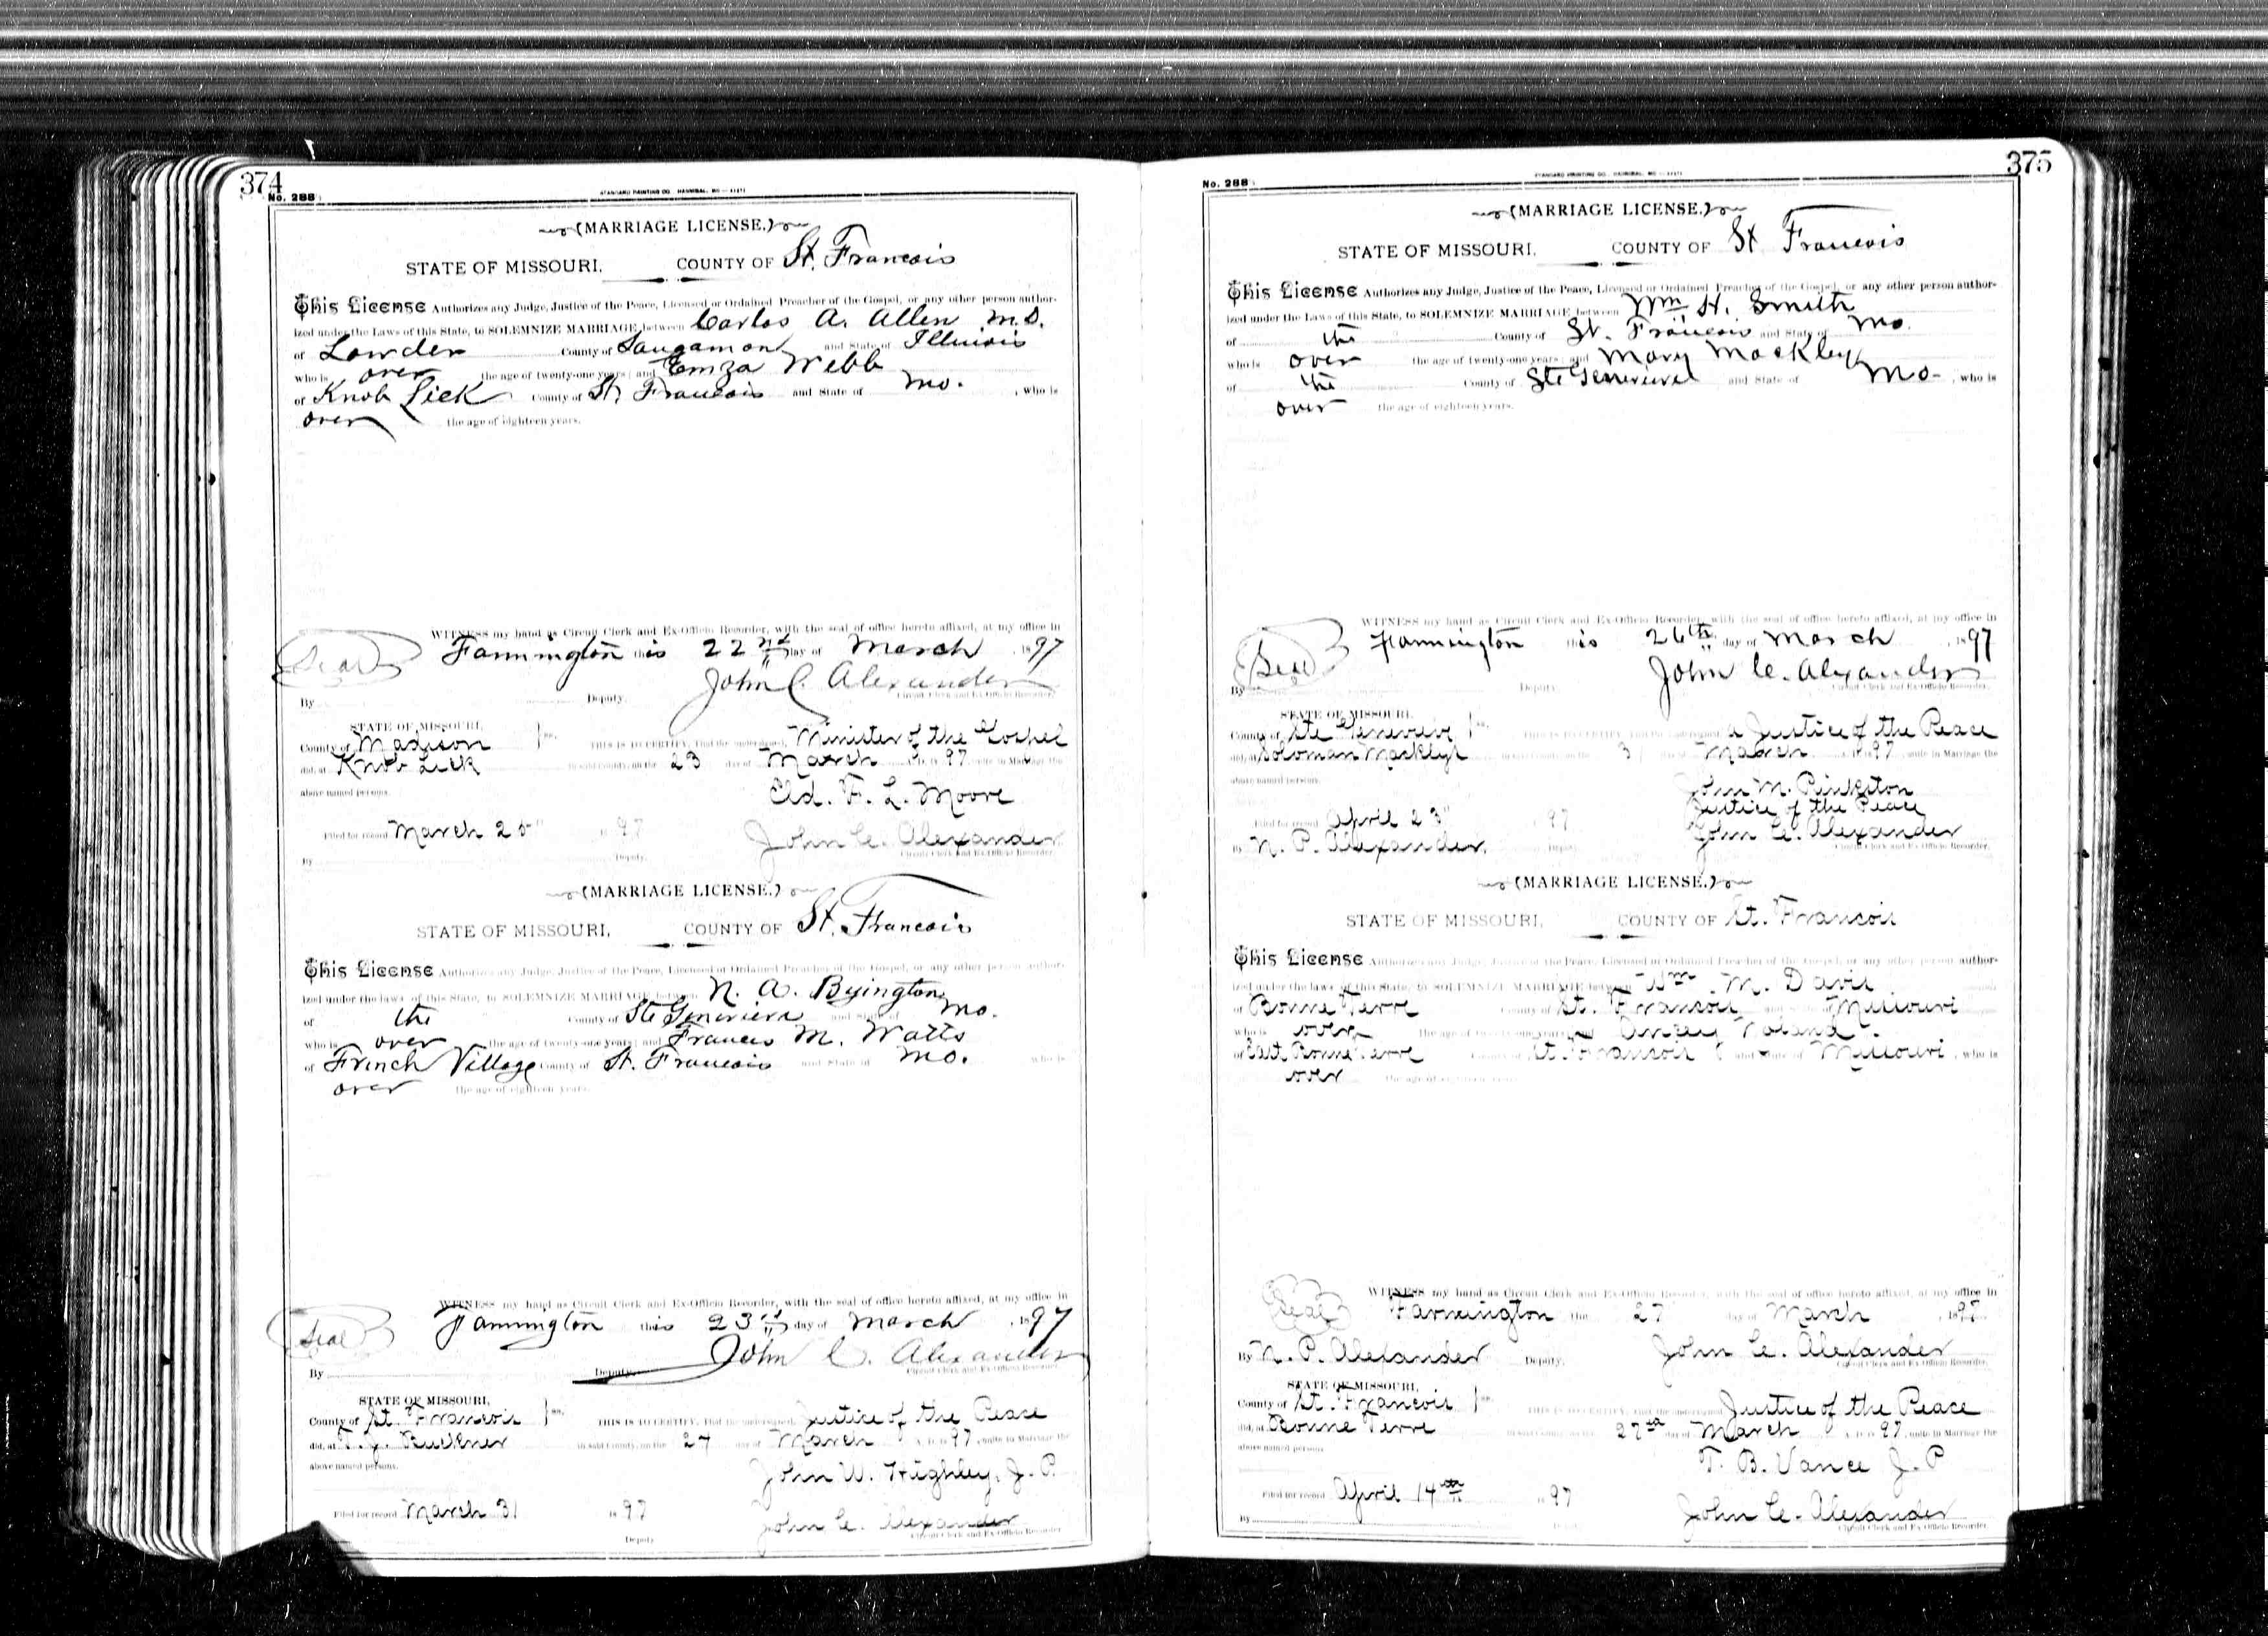 374
No. 288
STANDARD PRINTING CO., HANNIBAL, MO
(MARRIAGE LICENSE.)
STATE OF MISSOURI, COUNTY OF St. Francois
This License Authorizes any Judge, Justice of the Peace, Licensed or Ordained Preacher of the Gospel, or any other person author-
ized under the Laws of this State, to SOLEMNIZE MARRIAGE between Carlos A. Allen M.D.
of Lowder County of Sangamon and State of Illinois
who is over the age of twenty-one years; and Emza Webb
of Knob Lick County of St. Francois and State of Mo. , who is
over the age of eighteen years.
WITNESS my hand as Circuit Clerk and Ex-Officio Recorder, with the seal of office hereto affixed, at my office in
Seal Farmington this 22nd day of March 1897
John C. Alexander
By Deputy. Circuit Clerk and Ex-Officio Recorder.
STATE OF MISSOURI,
County of Madison ss. THIS IS TO CERTIFY, That the undersigned, Minister of the Gospel
did, at Knob Lick in said County, on the 23 day of March A. D. 1897, unite in Marriage the
above named persons. Eld. F. L. Moore
Filed for record March 25" 1897 John C. Alexander
By Deputy. Circuit Clerk and Ex-Officio Recorder.
(MARRIAGE LICENSE.)
STATE OF MISSOURI, COUNTY OF St. Francois
This License Authorizes any Judge, Justice of the Peace, Licensed or Ordained Preacher of the Gospel, or any other person author-
ized under the laws of this State, to SOLEMNIZE MARRIAGE between N. A. Byington
of the County of Ste Genevieve and State of Mo.
who is over the age of twenty-one years; and Frances M. Watts
of French Village County of St. Francois and State of Mo. who is
over the age of eighteen years.
WITNESS my hand as Circuit Clerk and Ex-Officio Recorder, with the seal of office hereto affixed, at my office in
Seal Farmington this 23rd day of March , 1897
John C. Alexander
By Deputy. Circuit Clerk and Ex-Officio Recorder.
STATE OF MISSOURI,
County of St. Francois ss. THIS IS TO CERTIFY, That the undersigned, Justice of the Peace
did, at Buckner in said County, on the 27 day of March A. D. 1897, unite in Marriage the
above named persons. John W. Highley, J. P.
Filed for record March 31 1897 John C. Alexander
Deputy Circuit Clerk and Ex-Officio Recorder
375
No. 288
STANDARD PRINTING CO., HANNIBAL, MO
(MARRIAGE LICENSE.)
STATE OF MISSOURI, COUNTY OF St Francois
This License Authorizes any Judge, Justice of the Peace, Licensed or Ordained Preacher of the Gospel, or any other person author-
ized under the Laws of this State, to SOLEMNIZE MARRIAGE between Wm H. Smith
of the County of St. Francois and State of Mo.
who is over the age of twenty-one years; and Mary Mackley
of the County of Ste Genevieve and State of Mo , who is
over the age of eighteen years.
WITNESS my hand as Circuit Clerk and Ex-Officio Recorder, with the seal of office hereto affixed, at my office in
Seal Farmington this 26th day of March 1897
John C. Alexander
By Deputy. Circuit Clerk and Ex-Officio Recorder.
STATE OF MISSOURI,
County of Ste Genevieve ss. THIS IS TO CERTIFY, That the undersigned, a Justice of the Peace
did, at Soloman Mackleys in said County, on the 31 day of March A. D. 1897, unite in Marriage the
above named persons. John M. Pinkston
Justice of the Peace
Filed for record April 23" 1897 John C. Alexander
By N. P. Alexander Deputy Circuit Clerk and Ex-Officio Recorder.
(MARRIAGE LICENSE.)
STATE OF MISSOURI, COUNTY OF St. Francois
This License Authorizes any Judge, Justice of the Peace, Licensed or Ordained Preacher of the Gospel, or any other person author-
ized under the laws of this State, to SOLEMNIZE MARRIAGE between Wm. M. Davis
of Bonne Terre County of St. Francois and State of Missouri
who is over the age of twenty-one years; and Noland
of East Bonne Terre County of St. Francois and State of Missouri , who is
over the age of eighteen years
WITNESS my hand as Circuit Clerk and Ex-Officio Recorder, with the seal of office hereto affixed, at my office in
Seal Farmington this 27 day of March , 1897
By N. P. Alexander Deputy. John C. Alexander
Circuit Clerk and Ex-Officio Recorder.
STATE OF MISSOURI,
County of St. Francois ss. THIS IS TO CERTIFY, That the undersigned Justice of the Peace
did, at Bonne Terre in said County, on the 27th day of March A. D. 1897, unite in Marriage the
above named persons. T. B. Vance J. P
Filed for record April 14th 1897 John C. Alexander
By Deputy Circuit Clerk and Ex-Officio Recorder